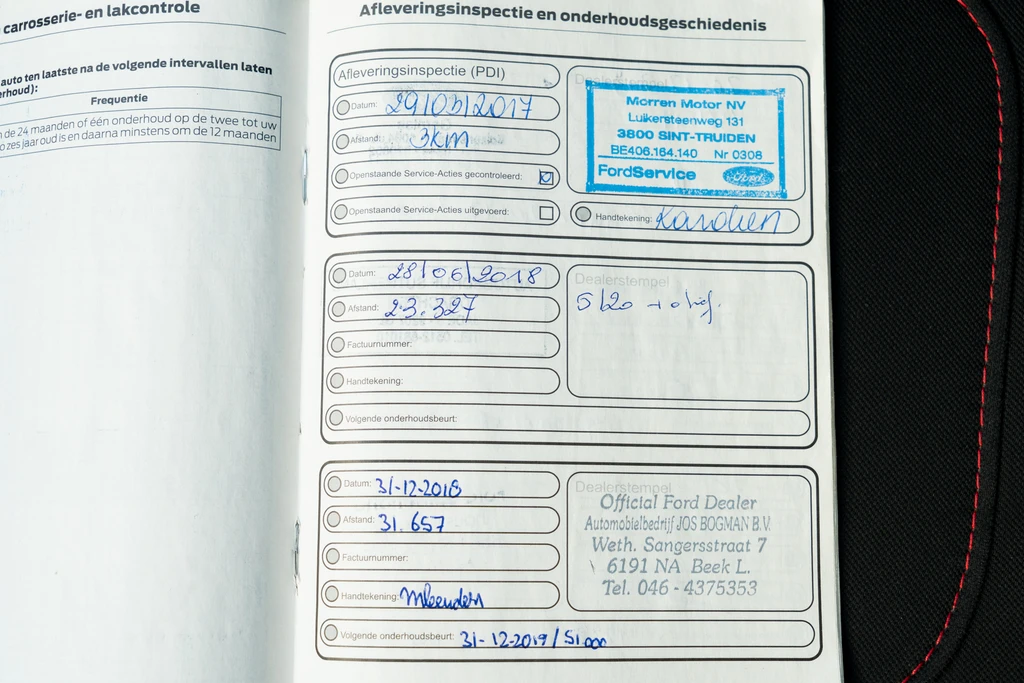 carrosserie- en lakcontrole
auto ten laatste na de volgende intervallen laten
erhoud):
Frequentie
de 24 maanden of één onderhoud op de twee tot uw
zes jaar oud is en daarna minstens om de 12 maanden
Afleveringsinspectie en onderhoudsgeschiedenis
Afleveringsinspectie (PDI)
Datum: 29/03/2017
Afstand: 3KM
Openstaande Service-Acties gecontroleerd:
Openstaande Service-Acties uitgevoerd:
Dealerstempel
Morren Motor NV
Luikersteenweg 131
3800 SINT-TRUIDEN
BE406.164.140 Nr 0308
FordService Ford
Handtekening:
Datum: 28/06/2018
Afstand: 23.327
Factuurnummer:
Handtekening:
Volgende onderhoudsbeurt:
Dealerstempel
5/20
Datum: 31-12-2018
Afstand: 31.657
Factuurnummer:
Handtekening:
Volgende onderhoudsbeurt: 31-12-2019 / 51.000
Dealerstempel
Official Ford Dealer
Automobielbedrijf JOS BOGMAN B.V.
Weth. Sangersstraat 7
6191 NA Beek L.
Tel. 046 - 4375353